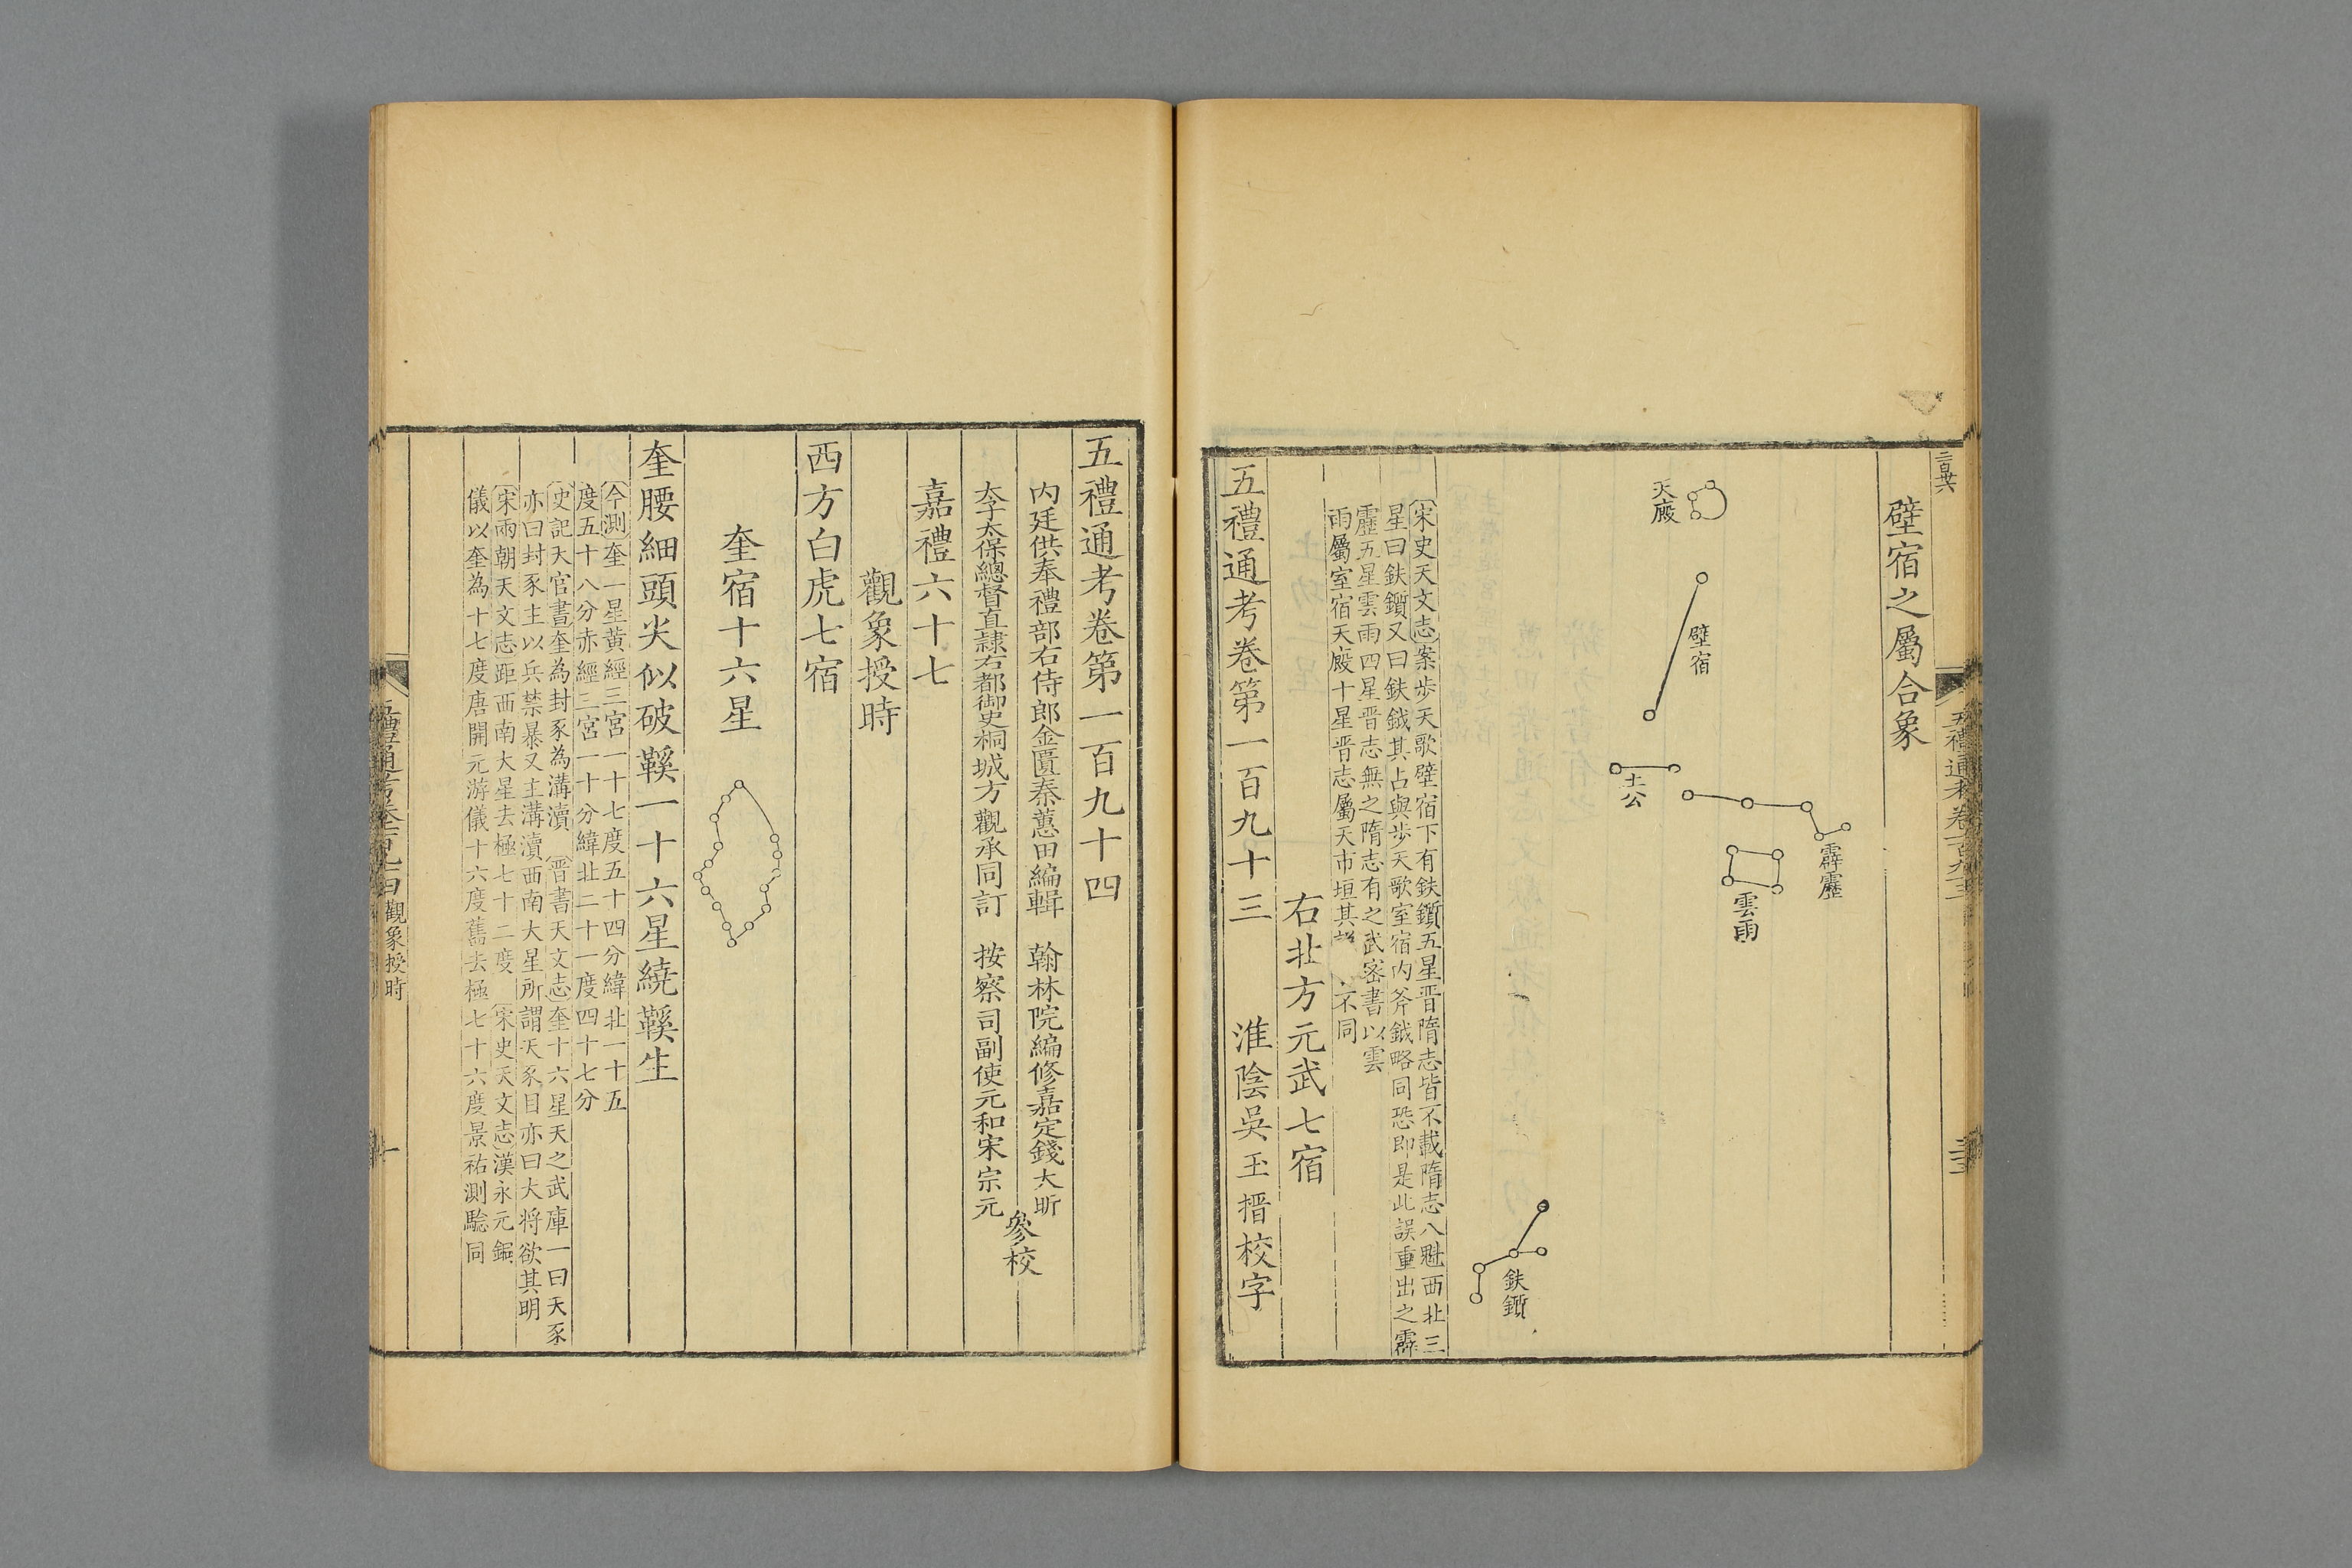 壁宿之屬合象
天廄
壁宿
土公
霹靂
雲雨
鈇鑕
宋史天文志案步天歌壁宿下有鈇鑕五星晋隋志皆不載隋志八魁西北三
星曰鈇鑕又曰鈇鉞其占與步天歌室宿内斧鉞略同恐即是此誤重出之霹
靂五星雲雨四星晋志無之隋志有之武密書以雲
雨屬室宿天廄十星晋志屬天市垣其 不同
右北方元武七宿
五禮通考卷第一百九十三 淮陰吳玉搢校字
五禮通考卷第一百九十四
内廷供奉禮部右侍郎金匱秦蕙田編輯 翰林院編修嘉定錢大昕
太子太保總督直隷右都御史桐城方觀承同訂 按察司副使元和宋宗元
參校
嘉禮六十七
觀象授時
西方白虎七宿
奎宿十六星
奎腰細頭尖似破鞵一十六星繞鞵生
今測奎一星黃經三宮一十七度五十四分緯北一十五
度五十八分赤經三宮一十分緯北二十一度四十七分
史記天官書奎為封豕為溝瀆 晋書天文志奎十六星天之武庫一曰天豕
亦曰封豕主以兵禁暴又主溝瀆西南大星所謂天豕目亦曰大将欲其明
宋兩朝天文志距西南大星去極七十二度 宋史天文志漢永元銅
儀以奎為十七度唐開元游儀十六度舊去極七十六度景祐測驗同
觀象授時
一